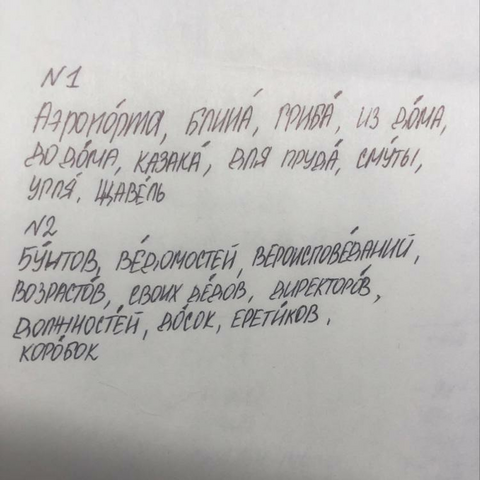 N1
Аэропо́рта, блина́, гриба́, из до́ма,
до до́ма, казака́, для пруда́, сму́ты,
угля́, щаве́ль
N2
Бу́нтов, ве́домостей, вероиспове́даний,
возрасто́в, своих де́дов, директоро́в,
должносте́й, до́сок, ерети́ков,
коро́бок